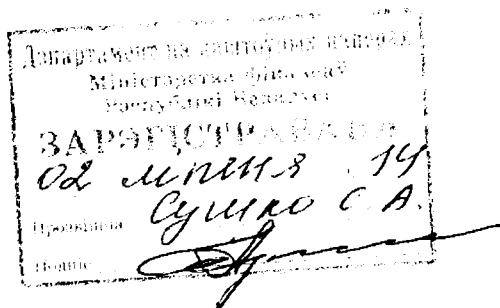 Дэпартамент па каштоўных паперах
Міністэрства фінансаў
Рэспублікі Беларусь
ЗАРЭГІСТРАВАНА
02 ліпеня 14
Прозвішча Сушко С. А.
Подпіс